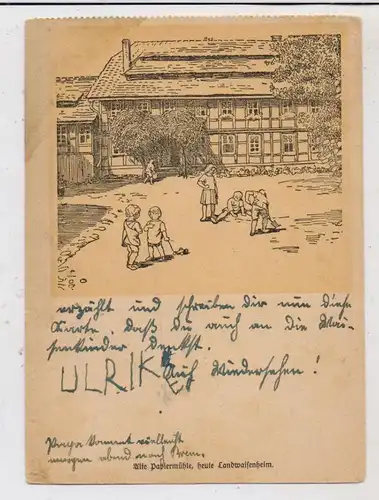 erzählt und schreiben dir nun diese
Karte, daß du auch an die Wai-
senkinder denkst
ULRIKE Auf Wiedersehen!
Papa kommt vielleicht
morgen abend nach
Alte Papiermühle, heute Landwaisenheim.